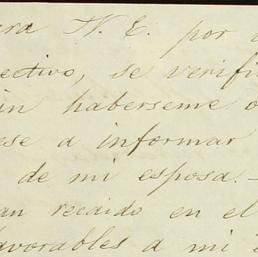 ara N. E. por
ectivo, se verifi
in haberseme o
ese a informar
de mi esposa.–
an recaido en el
avorables a mi